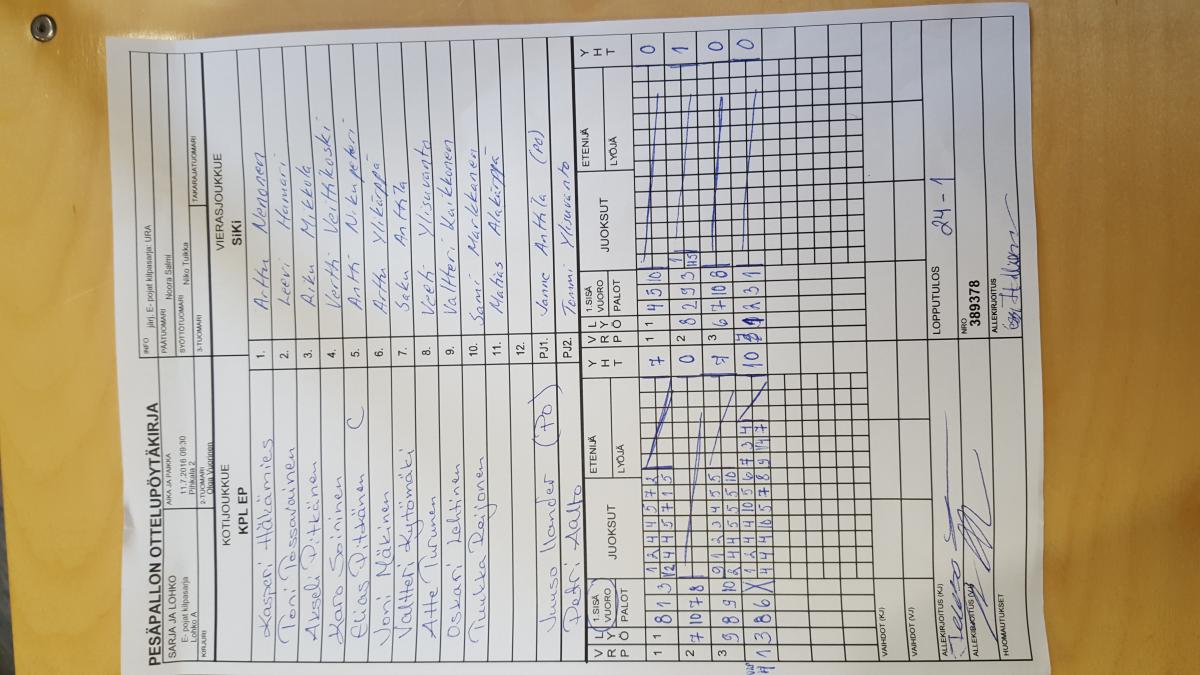 PESÄPALLON OTTELUPÖYTÄKIRJA
SARJA JA LOHKO
E- pojat kilpasarja
Lohko A
KIRJURI
AIKA JA PAIKKA
11.7.2016 09:30
Pihkala 2
2-TUOMARI
INFO järj. E- pojat kilpasarja: URA
PÄÄTUOMARI Noora Salmi
SYÖTTÖTUOMARI Niko Tuikka
3-TUOMARI
TAKARAJATUOMARI
KOTIJOUKKUE
KPL EP
VIERASJOUKKUE
SiKi
Kasperi Häkämies 1. Arttu Nenonen
Toni Tossavainen 2. Leevi Hamari
Akseli Pitkänen 3. Riku Mikkola
Karo Soininen 4. Vertti Veittikoski
Elias Pitkänen C 5. Antti Nikupeteri
Joni Mäkinen 6. Arttu Ylikärppä
Valtteri Kytömäki 7. Saku Anttila
Atte Turunen 8. Veeti Ylisuvanto
Oskari Lehtinen 9. Valtteri Kaikkonen
Tuukka Reijonen 10. Sami Markkanen
11. Matias Alakärppä
12.
Juuso Nander (PO) PJ1. Janne Anttila (PO)
Petri Aalto PJ2. Tommi Ylisuvanto
VRP LYÖ 1.SISÄ VUORO PALOT JUOKSUT ETENIJÄ LYÖJÄ YHT VRP LYÖ 1.SISÄ VUORO PALOT JUOKSUT ETENIJÄ LYÖJÄ YHT
1 1 8 1 3 1 2 4 4 5 7 2 7 1 1 4 5 10 0
1/2 4 4 5 7 1 5
2 7 10 7 8 0 2 8 2 9 3 1 1
3 9 8 9 10 9 1 2 3 4 5 5 7 3 6 7 10 8 0
2 4 4 5 5 5 10
1 3 8 6 X 1 2 4 4 10 5 6 7 3 4 10 2 3 1 0
4 4 4 10 5 7 8 9
VAIHDOT (KJ)
VAIHDOT (VJ)
ALLEKIRJOITUS (KJ)
ALLEKIRJOITUS (VJ)
HUOMAUTUKSET
LOPPUTULOS 24 - 1
NRO
389378
ALLEKIRJOITUS